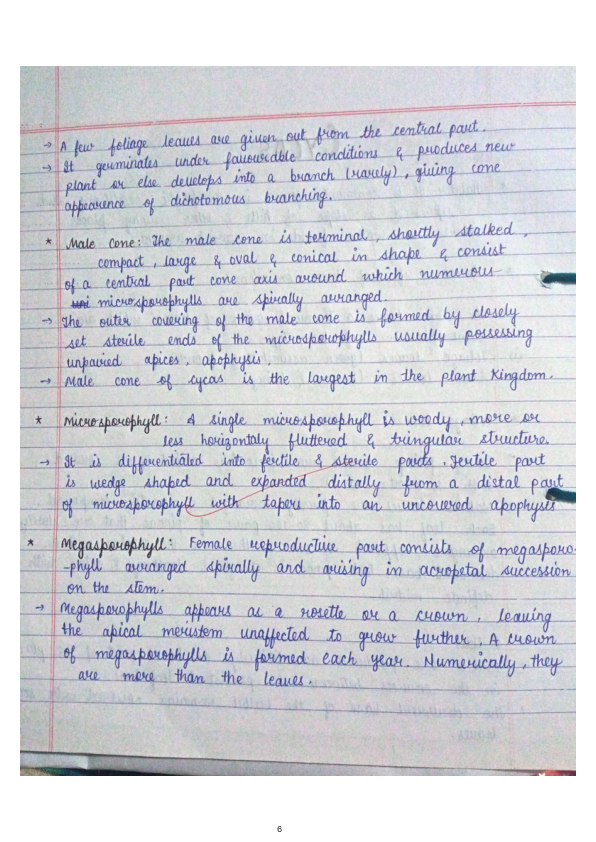 → A few foliage leaves are given out from the central part.
→ It germinates under favourable conditions & produces new
plant or else develops into a branch (rarely), giving cone
appearence of dichotomous branching.
* Male Cone: The male cone is terminal, shortly stalked,
compact, large & oval & conical in shape & consist
of a central part cone axis around which numerous
microsporophylls are spirally arranged.
→ The outer covering of the male cone is formed by closely
set sterile ends of the microsporophylls usually possessing
unpaired apices, apophysis.
→ Male cone of cycas is the largest in the plant Kingdom.
* Microsporophyll: A single microsporophyll is woody, more or
less horizontaly fluttered & tringular structure.
→ It is differentiated into fertile & sterile parts. Fertile part
is wedge shaped and expanded distally from a distal part
of microsporophyll with tapers into an uncovered apophysis
* Megasporophyll: Female reproductive part consists of megasporo-
-phyll arranged spirally and arising in acropetal succession
on the stem.
→ Megasporophylls appears as a rosette or a crown, leaving
the apical meristem unaffected to grow further. A crown
of megasporophylls is formed each year. Numerically, they
are more than the leaves.
6